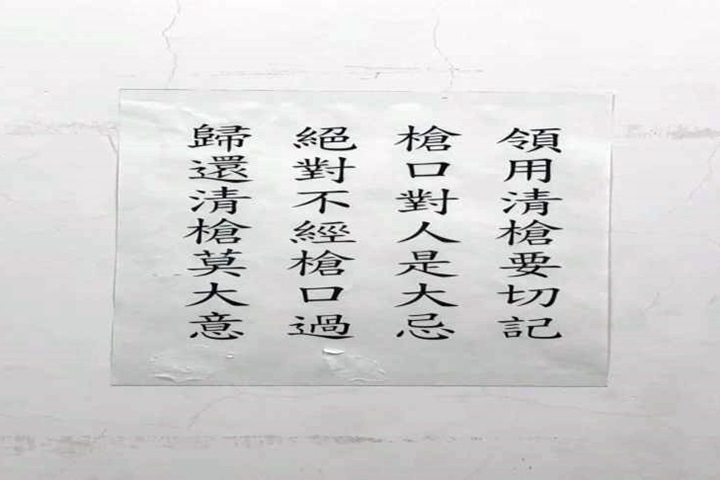 領用清槍要切記
槍口對人是大忌
絕對不經槍口過
歸還清槍莫大意